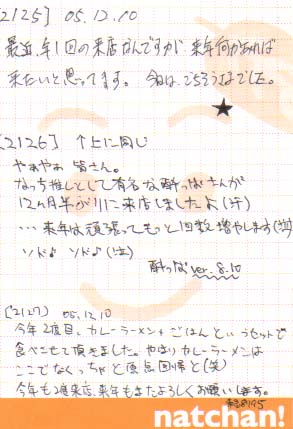 [2125] 05.12.10
最近、年1回の来店なんですが 来年何かあれば
来たいと思ってます。 今日は、ごちそうさまでした。
★
[2126] ↑上に同じ
やぁやぁ 皆さん。
なっち推しとして有名な酔っぱさんが
12ヵ月半ぶりに来店しましたよ(汗)
…来年は頑張ってもっと回数増やします(泣)
ソド♪ ソド♪(泣)
酔っぱ ver. 8.10
[2127] 05.12.10
今年2度目、カレーラーメン+ごはん というセットで
食べさせて頂きました。やはりカレーラーメンは
ここでなくっちゃと原点回帰と(笑)
今年も2度来店、来年もまたよろしくお願いします。
natchan!